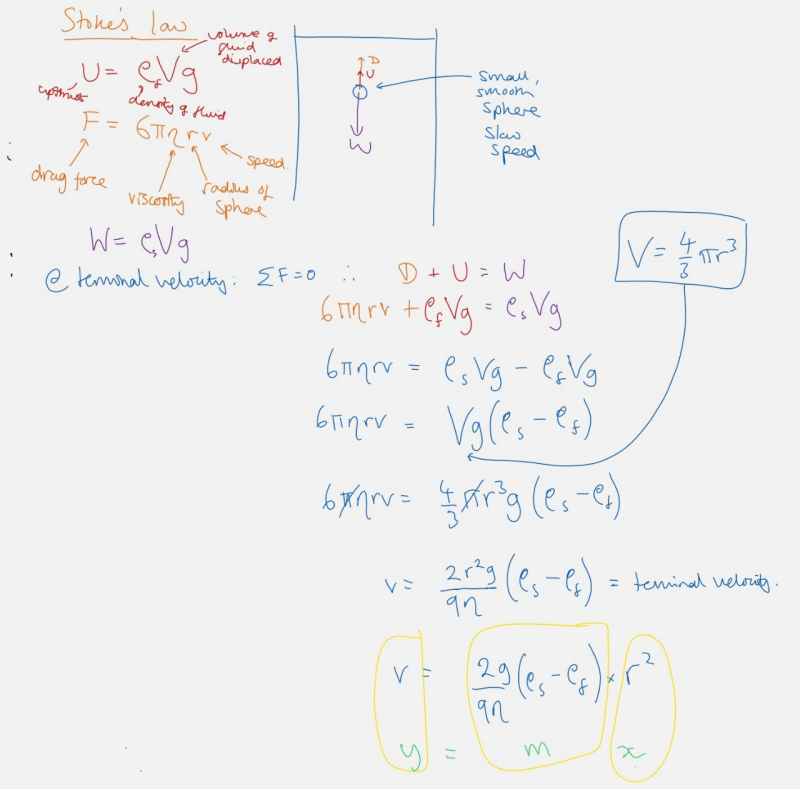 Stoke's law
volume of
fluid
displaced
U = ρ_f V g
upthrust
density of fluid
F = 6πηrv
speed
drag force
viscosity
radius of
sphere
D
U
W
small,
smooth
sphere
slow
speed
W = ρ_s V g
@ terminal velocity: ΣF=0 ∴ D + U = W
V = 4/3 πr³
6πηrv + ρ_f V g = ρ_s V g
6πηrv = ρ_s V g − ρ_f V g
6πηrv = Vg(ρ_s − ρ_f)
6πηrv = 4/3 πr³g (ρ_s − ρ_f)
v = 2r²g/9η (ρ_s − ρ_f) = terminal velocity.
v = 2g/9η (ρ_s − ρ_f) × r²
y = m x